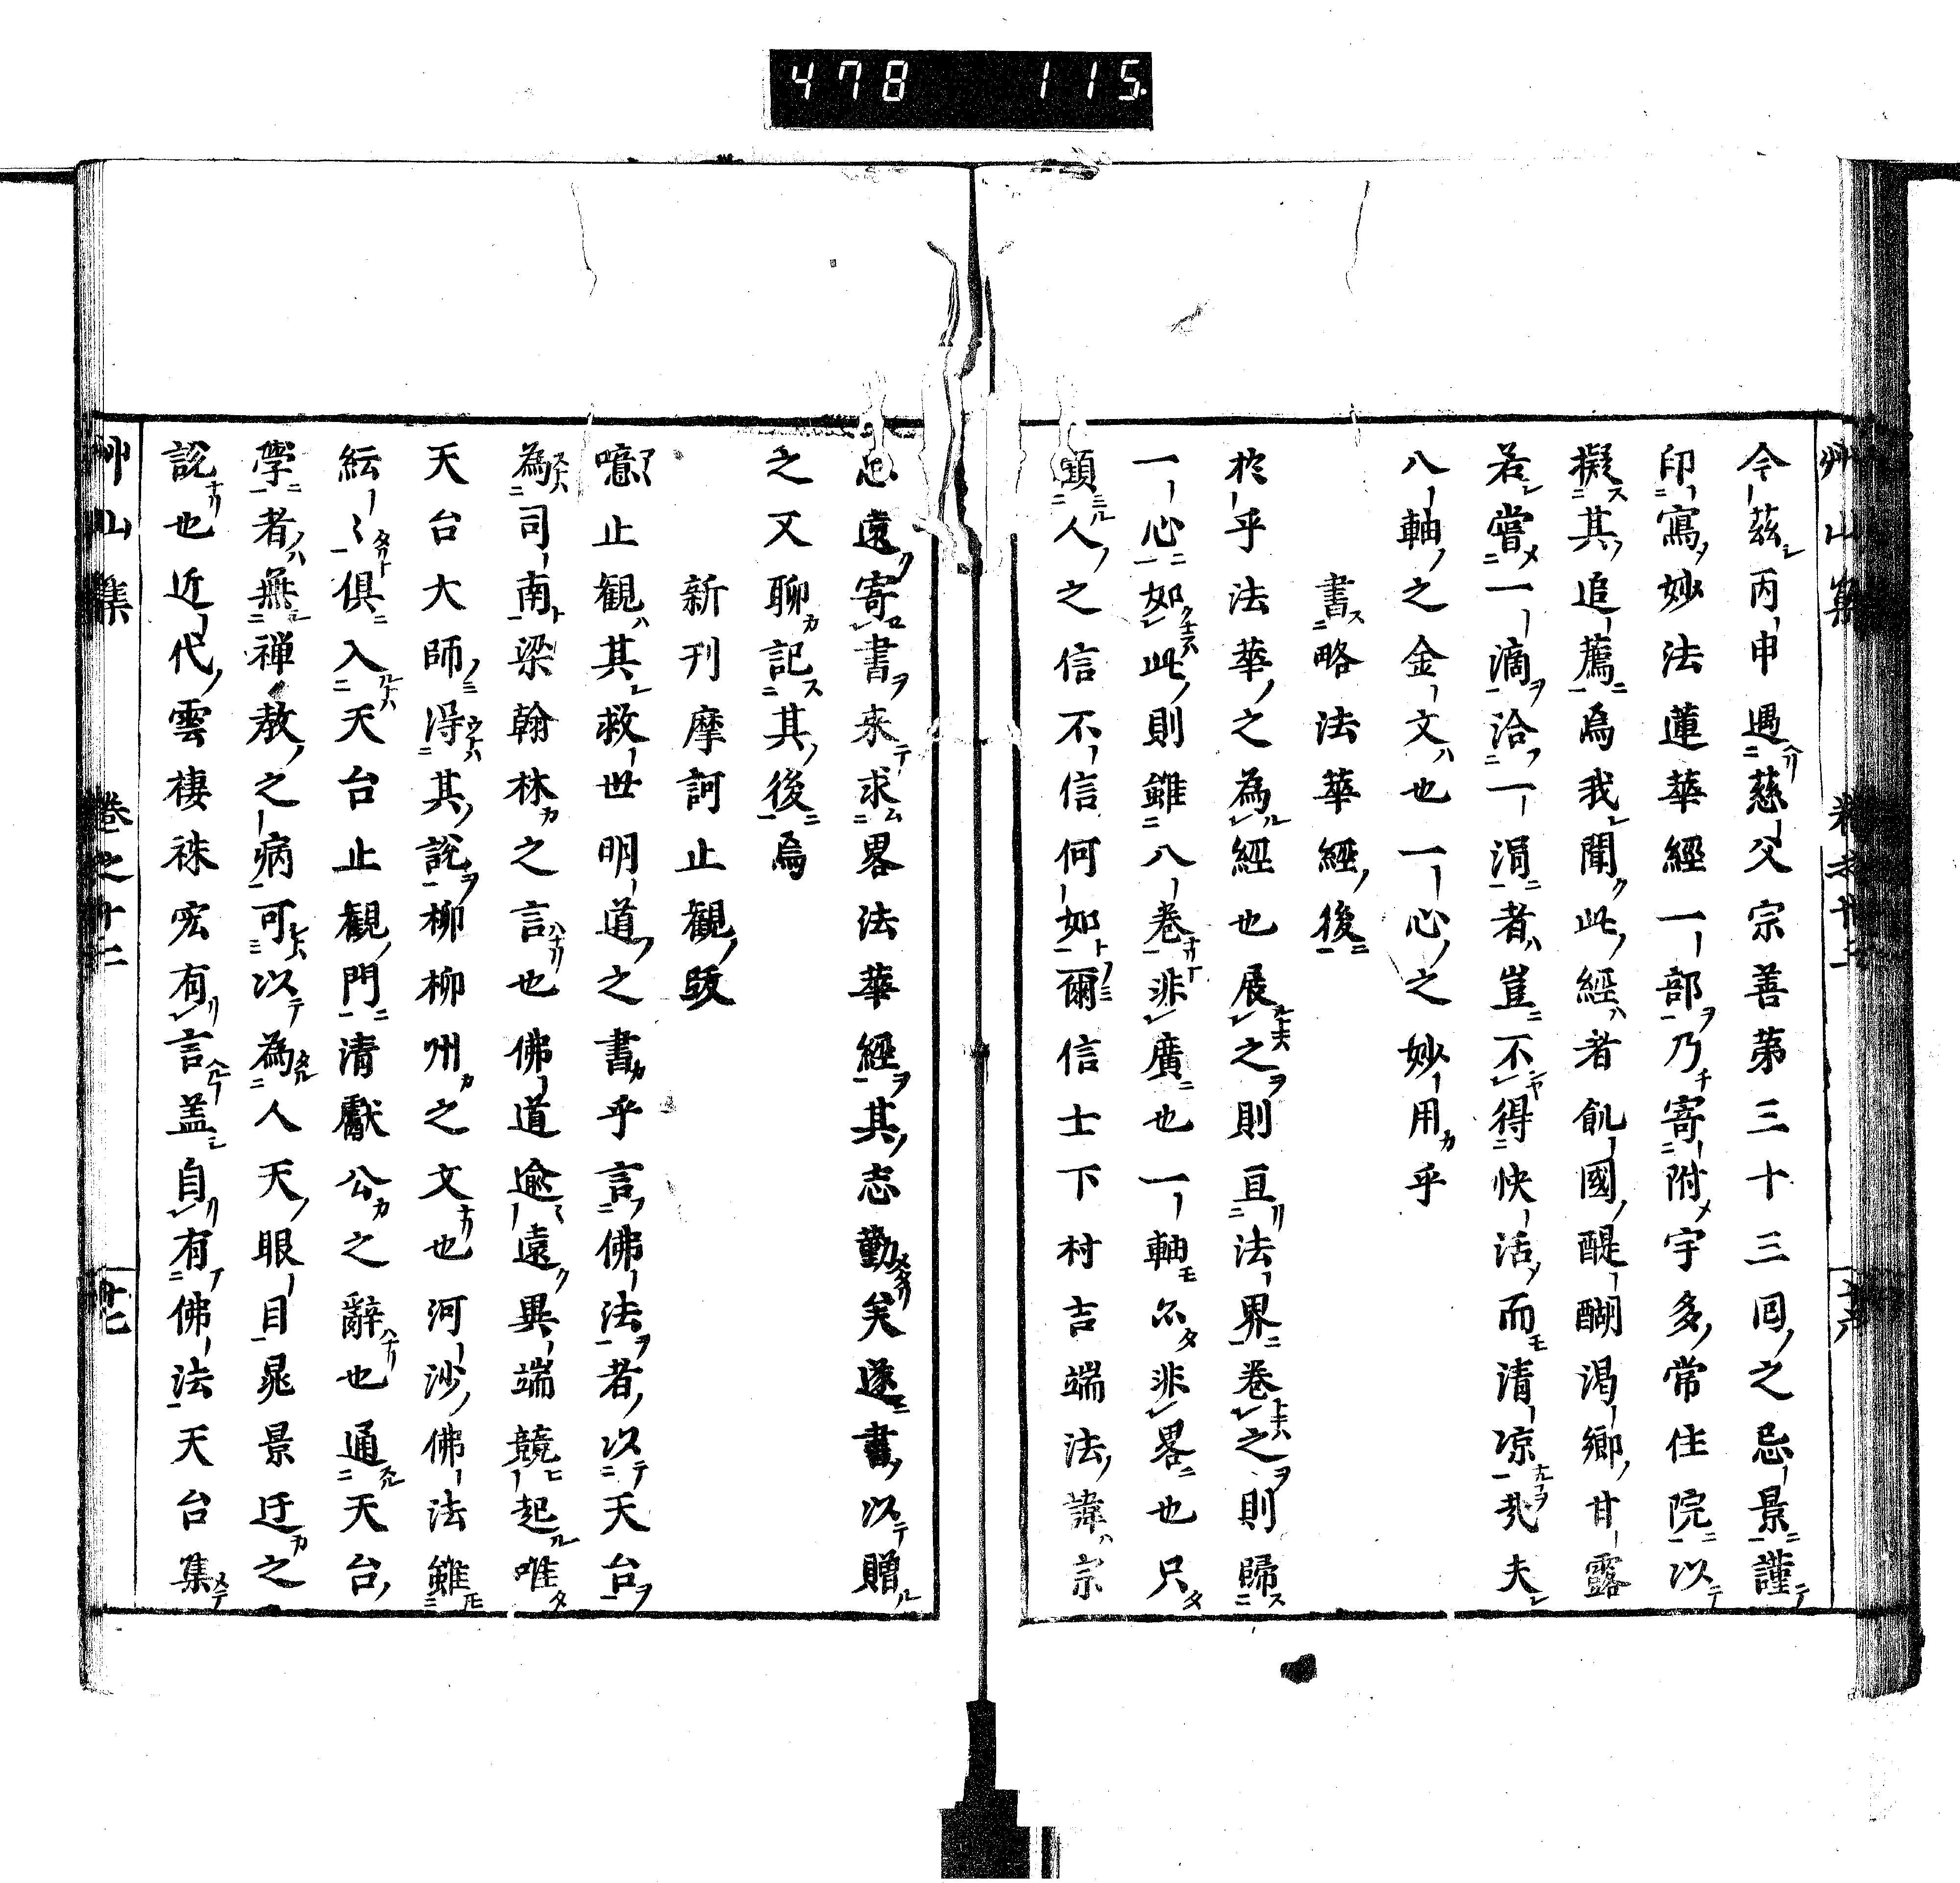 478 115
艸山集
今茲丙申遇慈父宗善第三十三回之忌景謹
印寫妙法蓮華經一部乃寄附宇多常住院以
擬其追薦焉我聞此經者飢國醍醐渴鄉甘露
若嘗一滴洽一涓者豈不得快活而清凉哉夫
八軸之金文也一心之妙用乎
書略法華經後
於乎法華之為經也展之則亘法界卷之則歸
一心如此則雖八卷非廣也一軸亦非畧也只
顧人之信不信何如爾信士下村吉端法諱宗
忠遠寄書來求畧法華經其志勤矣遂書以贈
之又聊記其後焉
新刊摩訶止觀跋
噫止觀其救世明道之書乎言佛法者以天台
為司南梁翰林之言也佛道逾遠異端競起唯
天台大師得其說柳柳州之文也河沙佛法雖
紜〻俱入天台止觀門清獻公之辭也通天台
學者無禅教之病可以為人天眼目晁景迂之
說也近代雲棲袾宏有言盖自有佛法天台集
艸山集 卷之十二 廿七